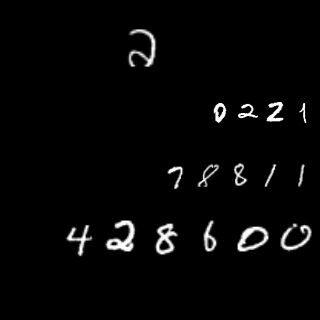 2
0221
78811
428600